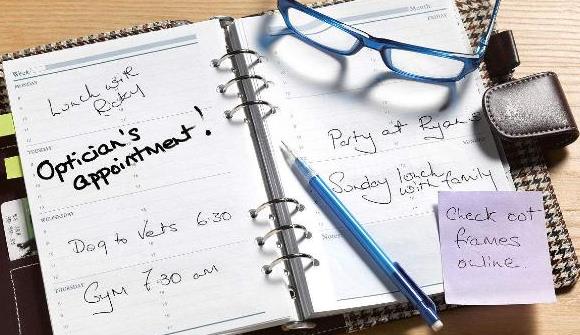 Week
MONDAY
Lunch with
Ricky
TUESDAY
Optician's
appointment!
WEDNESDAY
Dog to Vets 6.30
THURSDAY
Gym 7.30 am
Month
FRIDAY
Party at Ryan's
Sunday lunch
with family
Notes
Check out
frames
online